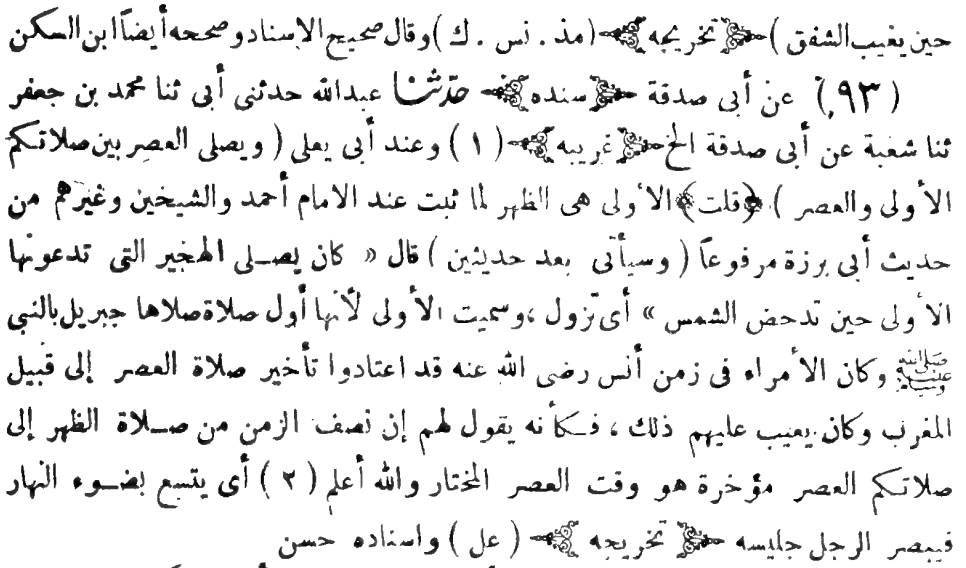 حين يغيب الشفق ) ﴿ تخريجه ﴾ ( مذ . نس . ك ) وقال صحيح الاسناد وصححه أيضاً ابن السكن
( ٩٣ ) عن أبى صدقة ﴿ سنده ﴾ حَدَّثَنَا عبد الله حدثنى أبى ثنا محمد بن جعفر
ثنا شعبة عن أبى صدقة الخ ﴿ غريبه ﴾ ( ١ ) وعند أبى يعلى ( ويصلى العصر بين صلاتكم
الأولى والعصر ) ﴿ قلت ﴾ الأولى هى الظهر لما ثبت عند الامام أحمد والشيخين وغيرهم من
حديث أبى برزة مرفوعاً ( وسيأتى بعد حديثين ) قال « كان يصلى الهجير التى تدعونها
الأولى حين تدحض الشمس » أى تزول ، وسميت الأولى لأنها أول صلاة صلاها جبريل بالنبى
ﷺ وكان الأمراء فى زمن أنس رضى الله عنه قد اعتادوا تأخير صلاة العصر إلى قبيل
المغرب وكان يعيب عليهم ذلك ، فكأنه يقول لهم إن نصف الزمن من صلاة الظهر إلى
صلاتكم العصر مؤخرة هو وقت العصر المختار والله أعلم ( ٢ ) أى يتسع بضوء النهار
فيبصر الرجل جليسه ﴿ تخريجه ﴾ ( عل ) واسناده حسن